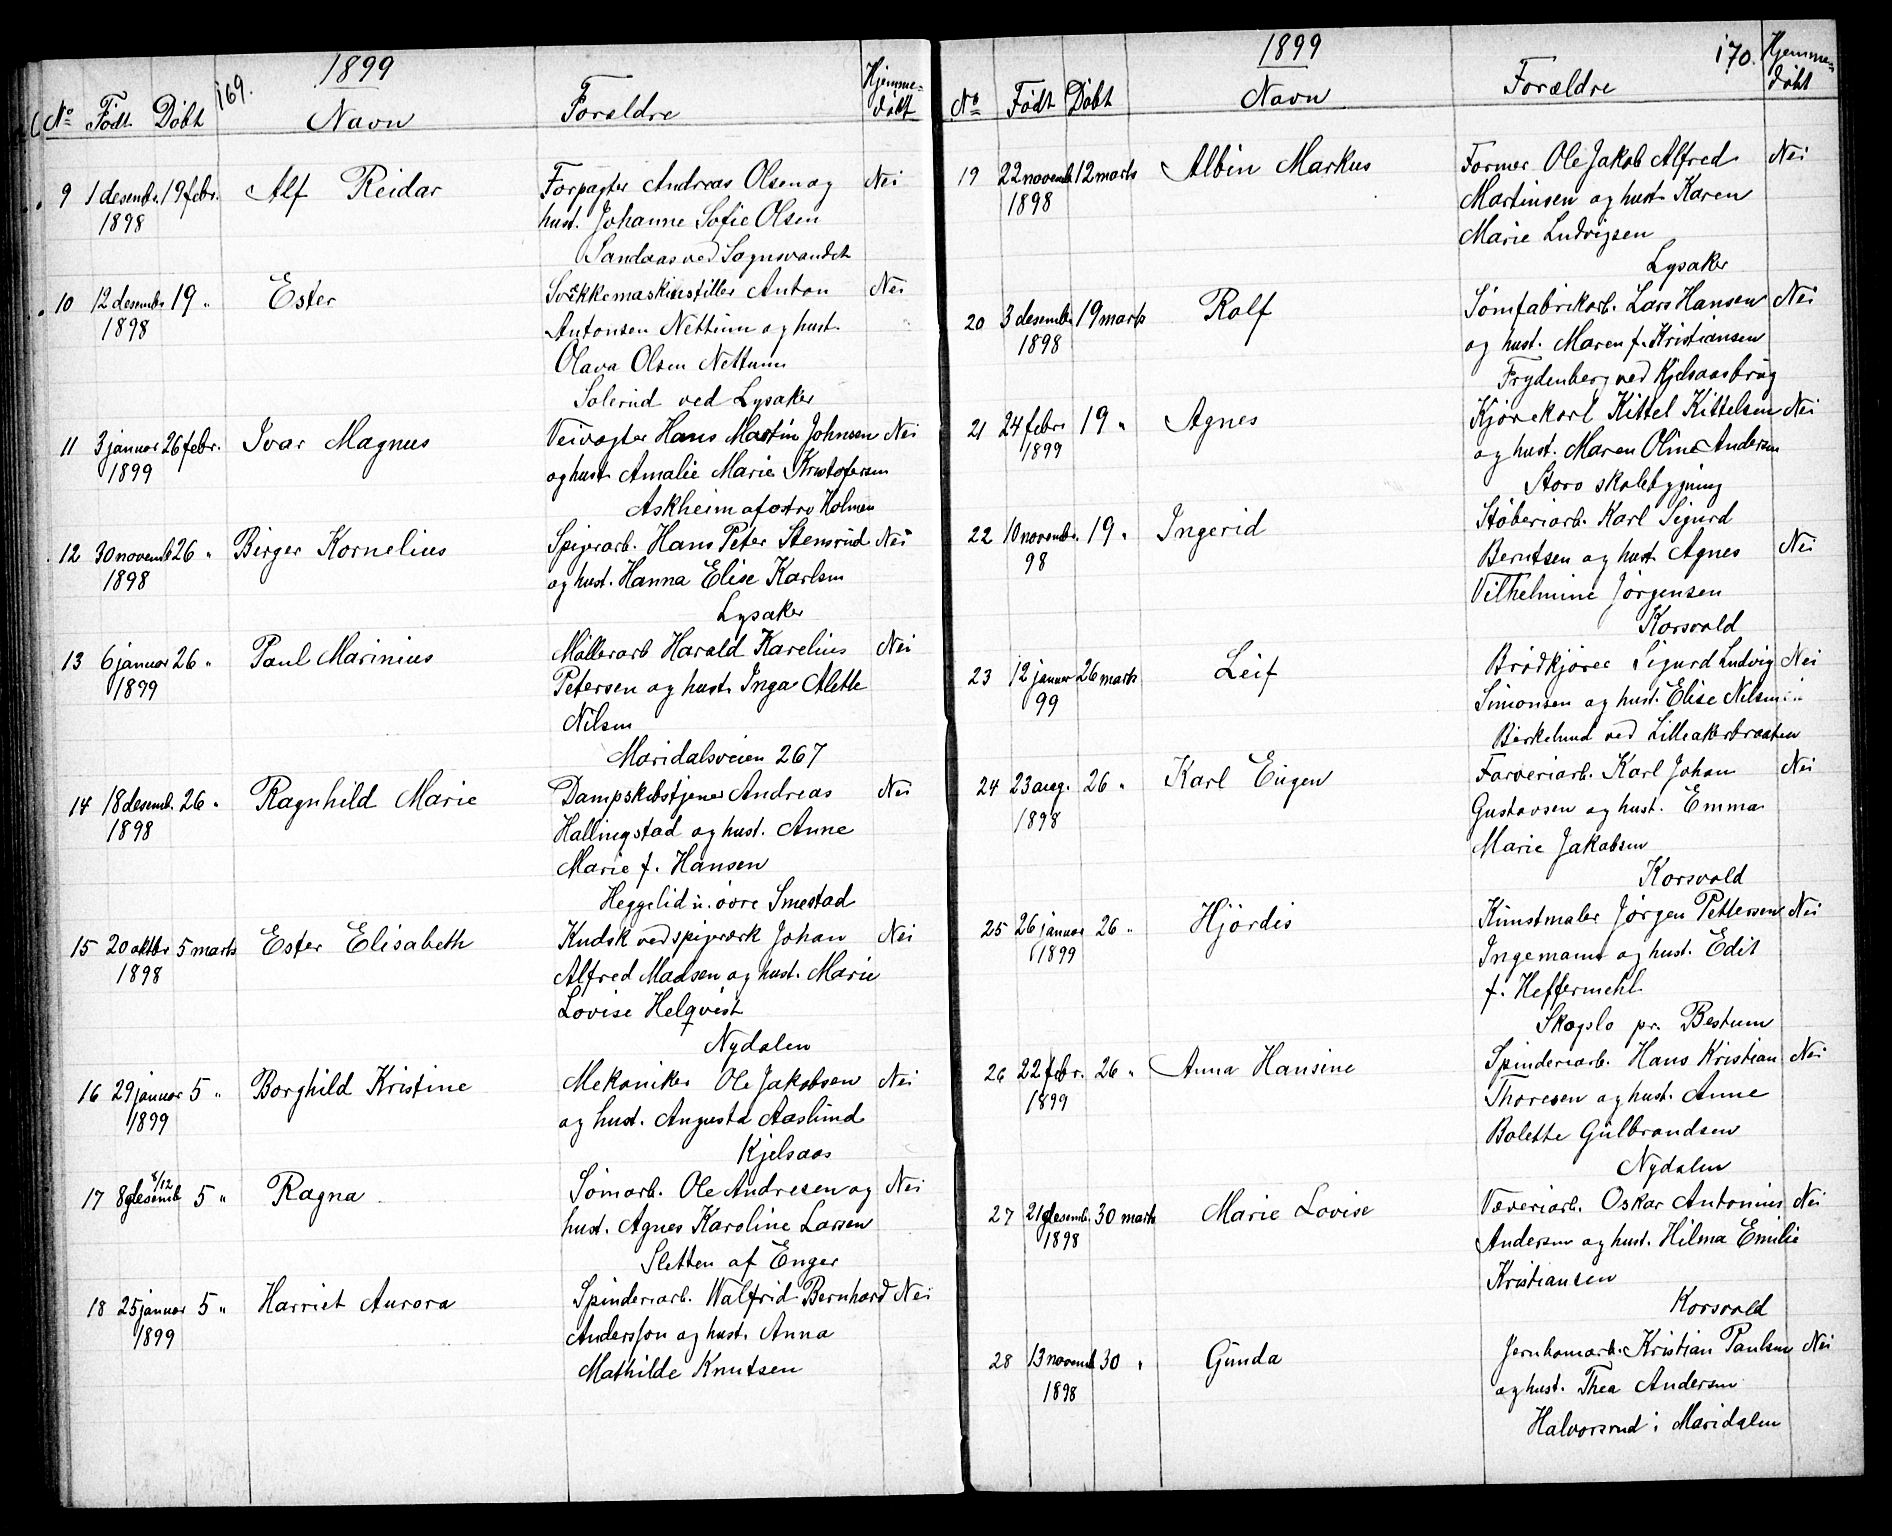 169.
1899
No Født Døbt Navn Forældre Hjemme=
døbt
9 1 desembr. 19 febr. Alf Reidar Forpagter Andreas Olsen og Nei
1898 hust. Johanne Sofie Olsen
Sandaas ved Sognsvandet
10 12 desembr 19 " Ester Svækkemaskinstiller Anton Nei
1898 Antonsen Nettum og hust.
Olava Olsen Nettum
Solerud ved Lysaker
11 3 januar 26 febr. Ivar Magnus Veivogter Hans Martin Johnsen Nei
1899 og hust. Amalie Marie Kristofersen
Askheim af østre Holmen
12 30 novemb 26 " Birger Kornelius Spigerarb. Hans Peter Stensrud Nei
1898 og hust. Hanna Elise Karlsen
Lysaker
13 6 januar 26 " Paul Marinius Møllerarb Harald Karelius Nei
1899 Petersen og hust. Inga Alette
Nilsen
Maridalsveien 267
14 18 desemb. 26 " Ragnhild Marie Dampskibstjener Andreas Nei
1898 Hallingstad og hust. Anne
Marie f. Hansen
Heggelid u. øvre Smestad
15 20 oktbr 5 marts Ester Elisabeth Kudsk ved spigerværk Johan Nei
1898 Alfred Madsen og hust. Marie
Lovise Helqvist
Nydalen
16 29 januar 5 " Borghild Kristine Mekaniker Ole Jakobsen Nei
1899 og hust. Augusta Aaslund
Kjelsaas
17 8 desemb 5 " Ragna Sømarb. Ole Andresen og Nei
hust. Agnes Karoline Larsen
Sletten af Enger
18 25 januar 5 " Harriet Aurora Spinderiarb. Walfrid Bernhard Nei
1899 Andersson og hust. Anna
Mathilde Knutsen
170.
1899
No Født Døbt Navn Forældre Hjemme=
døbt
19 22 novemb. 12 marts Albin Markus Former Ole Jakob Alfred Nei
1898 Martinsen og hust. Karen
Marie Ludvigsen
Lysaker
20 3 desemb. 19 marts Rolf Sømfabrikarb. Lars Hansen Nei
1898 og hust. Maren f. Kristiansen
Frydenberg ved Kjelsaasbrug
21 24 febr 19 " Agnes Kjørekarl Kittel Kittelsen Nei
1899 og hust. Maren Oline Andersen
Storo skolebygning
22 10 novembr. 19 " Ingerid Støberiarb. Karl Sigurd
98 Berntsen og hust. Agnes Nei
Vilhelmine Jørgensen
Korsvold
23 12 januar 26 marts Leif Brødkjører Sigurd Ludvig Nei
99 Simonsen og hust. Elise Nilsen
Birkelund ved Lilleakerbraaten
24 23 aug. 26 " Karl Eugen Farveriarb. Karl Johan Nei
1898 Gustavsen og hust. Emma
Marie Jakobsen
Korsvold
25 26 januar 26 " Hjørdis Kunstmaler Jørgen Pettersen Nei
1899 Ingemann og hust. Edit
f. Heffermehl
Skogslo pr. Bestum
26 22 febr. 26 " Anna Hansine Spinderiarb. Hans Kristian Nei
1899 Thoresen og hust. Anne
Bolette Gulbrandsen
Nydalen
27 21 desemb. 30 marts Marie Lovise Væveriarb. Oskar Antonius Nei
1898 Andersen og hust. Hilma Emilie
Kristiansen
Korsvold
28 13 novemb 30 " Gunda Jernbanearb. Kristian Paulsen Nei
1898 og hust. Thea Andersen
Halvorsrud i Maridalen